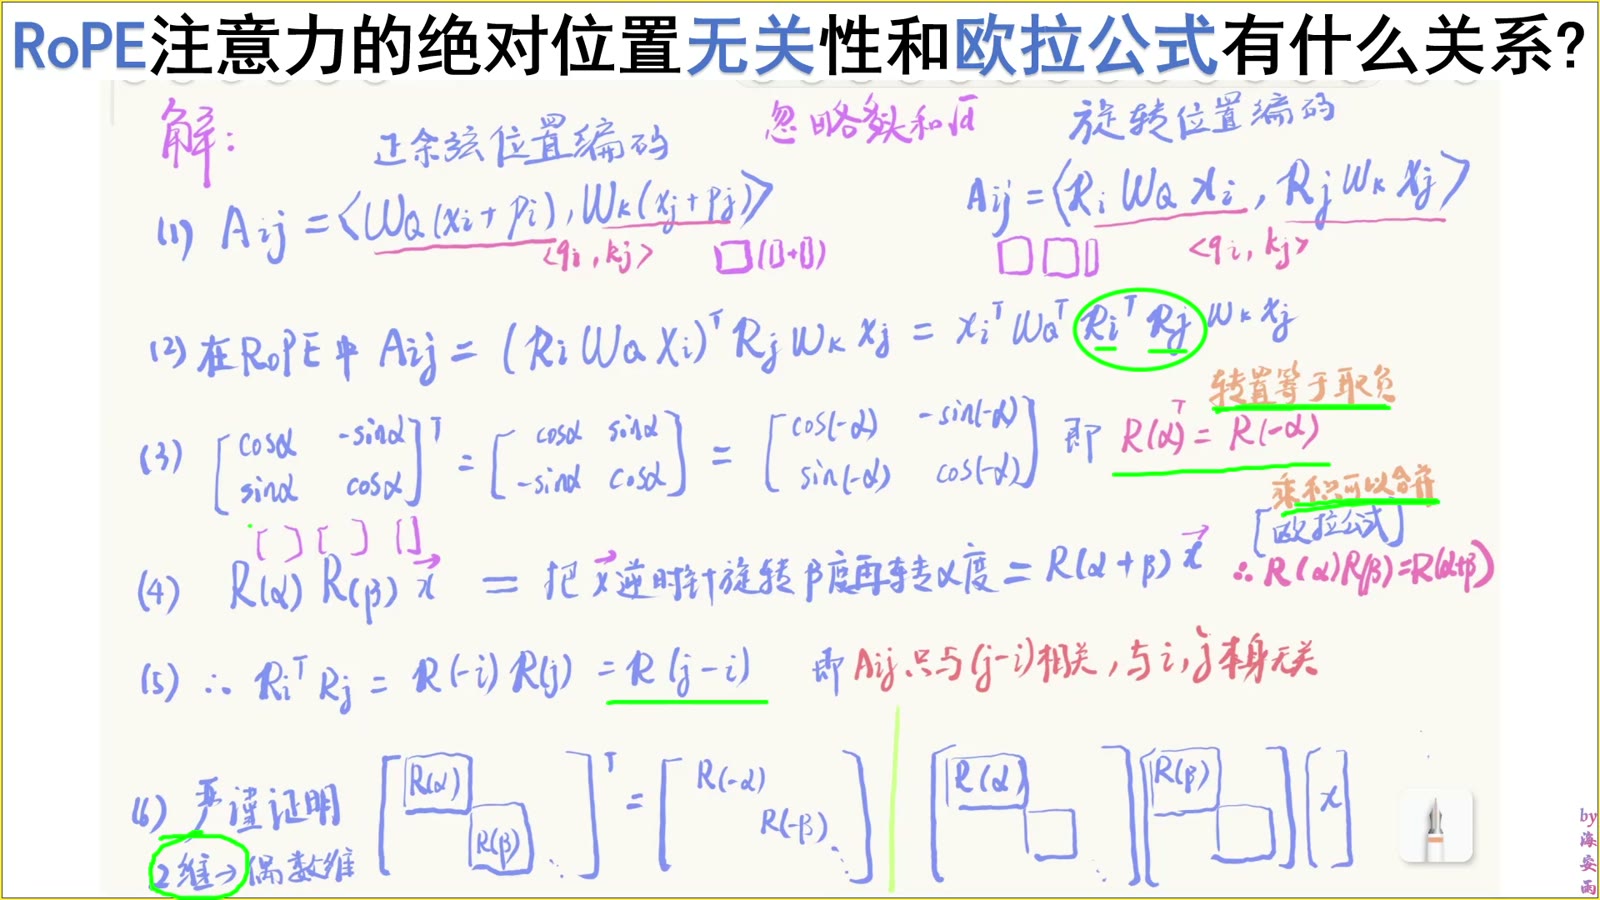 RoPE注意力的绝对位置无关性和欧拉公式有什么关系?
解:
正余弦位置编码
忽略多头和√d
旋转位置编码
(1) Aij = <WQ(xi+pi), WK(xj+pj)>
Aij = <Ri WQ xi, Rj WK xj>
<qi, kj>
□(▯+▯)
□□▯
<qi, kj>
(2) 在RoPE中 Aij = (Ri WQ xi)ᵀ Rj WK xj = xiᵀ WQᵀ Riᵀ Rj WK xj
转置等于取负
(3) [cosα -sinα sinα cosα]ᵀ = [cosα sinα -sinα cosα] = [cos(-α) -sin(-α) sin(-α) cos(-α)] 即 R(α)ᵀ = R(-α)
乘积可以合并
[欧拉公式]
[ ] [ ] []
(4) R(α) R(β) x⃗ = 把x⃗逆时针旋转β度再转α度 = R(α+β) x⃗ ∴ R(α)R(β)=R(α+β)
(5) ∴ Riᵀ Rj = R(-i) R(j) = R(j-i) 即 Aij只与(j-i)相关,与i,j本身无关
(6) 严谨证明
2维→偶数维
[R(α) R(β) ⋱]ᵀ = [R(-α) R(-β) ⋱]
[R(α)] [R(β)] [x]
by海安雨